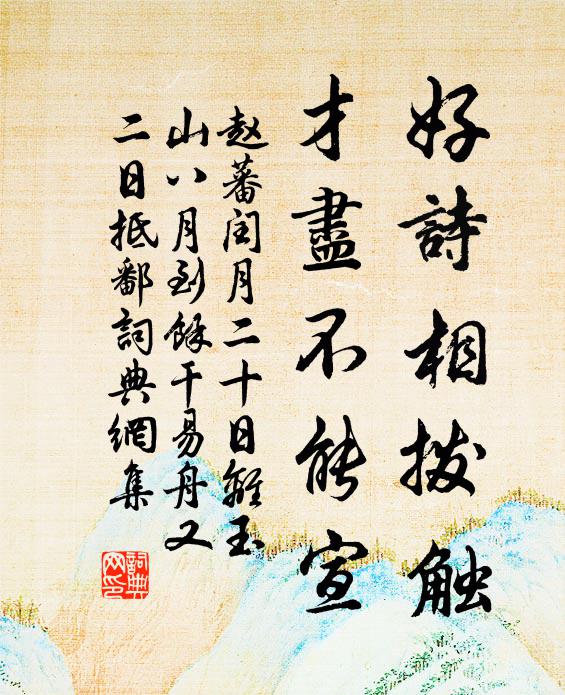 好詩相拨触
才盡不能宣
赵蕃閏月二十日離玉
山八月到餘干易舟又
二日抵鄱詞典網集
詞典
网印